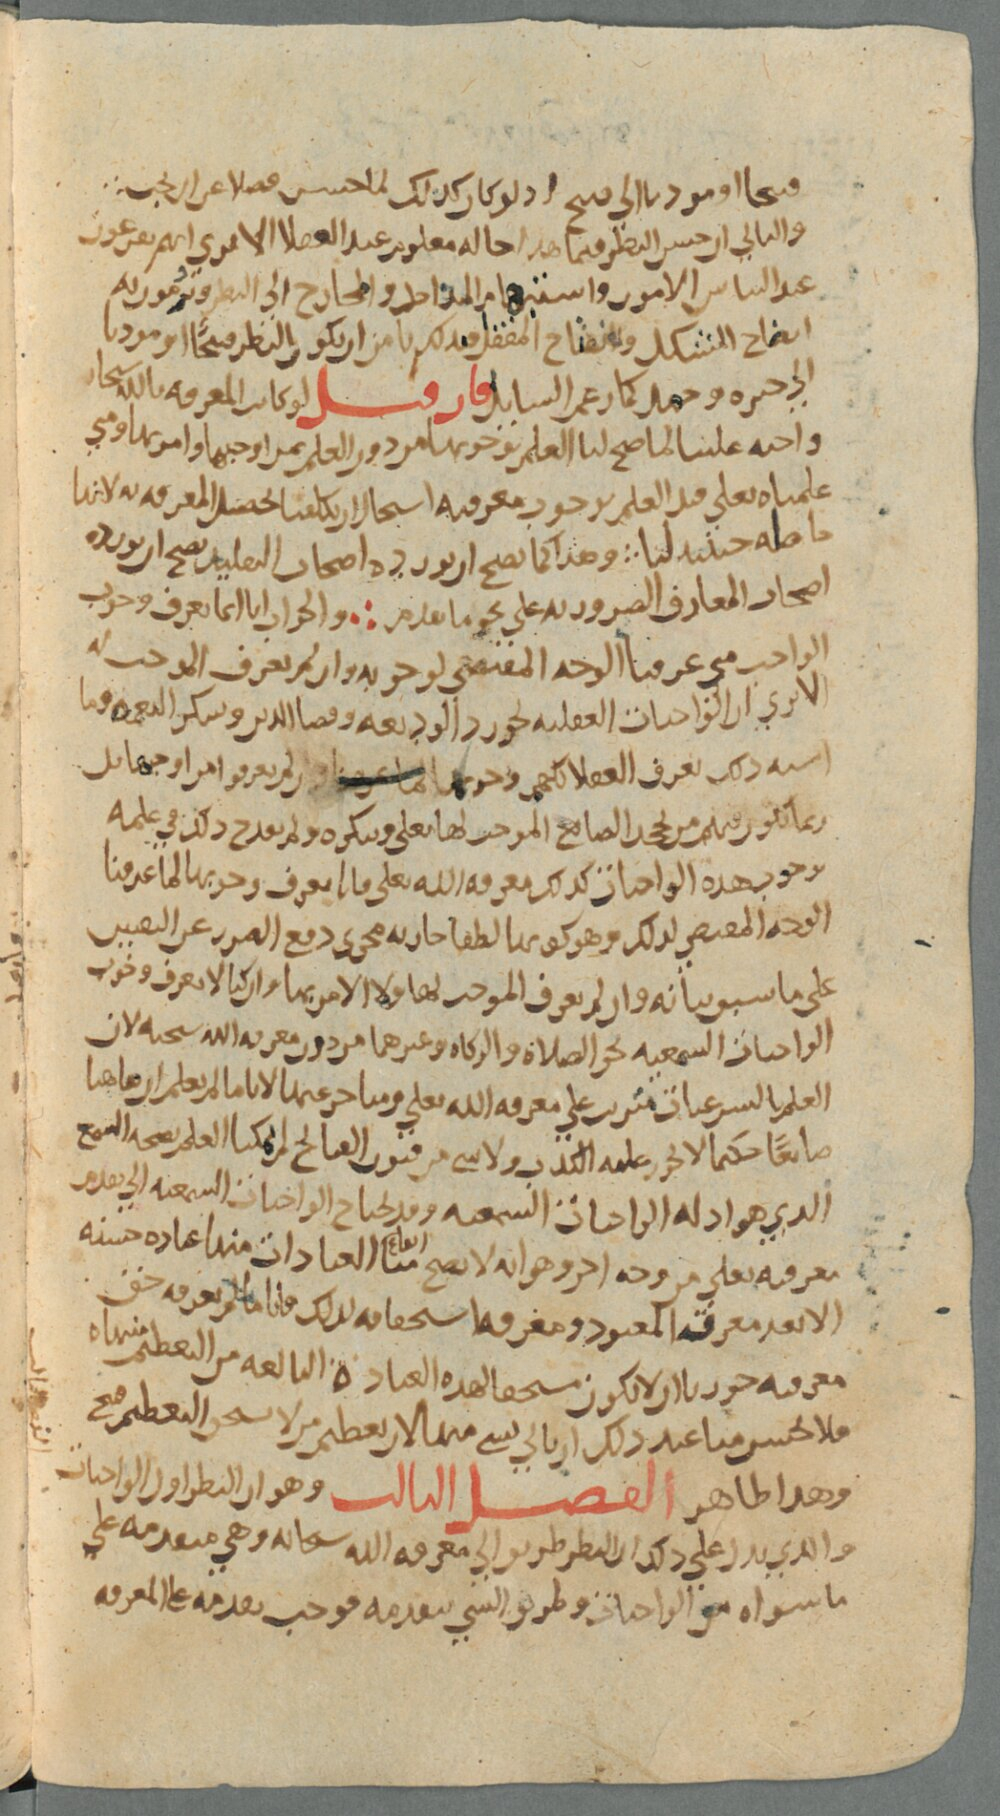 قبيحا او موديا الى قبيح اذ لو كان كذلك لما حسن فضلا عن ان يجب
والتالي ان حسن النظر فيما هذا حاله معلوم عند العقلا الا ترى انهم يفزعون
عند التباس الامور واستبهام المداخل والمخارج الى النظر ويرمون به
ايضاح المشكل وانفتاح المقفل فبذلك نامن ان يكون النظر قبيحًا او موديا
الى حيره وجهل كما زعم السايل فان قيل لو كانت المعرفه بالله سبحانه
واجبه علينا لما صح لنا العلم بوجوبها من دون العلم بمن اوجبها وامر بها ومتى
علمناه تعلى قبل العلم بوجوب معرفته استحال ان يكلفنا تحصيل المعرفه به لانها
حاصله حينئذ لنا وهذا كما يصح ان يورده اصحاب التقليد يصح ان يورده
اصحاب المعارف الضروريه على نحو ما تقدم والجواب انا انما نعرف وجوب
الواجب متى عرفنا الوجه المقتضي لوجوبه وان لم نعرف الموجب له
الا ترى ان الواجبات العقليه نحو رد الوديعه وقضا الدين وشكر النعمه وما
اشبه ذلك يعرف العقلا كلهم وجوبها وان لم يعرفوا من اوجبها بل
ربما تكون فيهم من يجحد الصانع الموجب لها تعلى وينكره ولم يقدح ذلك في علمه
بوجوب هذه الواجبات كذلك معرفه الله تعلى فانا نعرف وجوبها لما عرفنا
الوجه المقتضي لذلك وهو كونها لطفا جاريه مجرى دفع الضرر عن النفس
على ما سيو بيانه وان لم نعرف الموجب لها ولا الامر بها وان كنا لا نعرف وجوب
الواجبات السمعيه نحو الصلاة والزكاه وغيرهما من دون معرفه الله سبحنه لان
العلم بالشرعيات مترتب على معرفه الله تعلى ومتاخر عنها لانا ما لم نعلم ان هاهنا
صانعًا حكيما لا يجوز عليه الكذب ولا شي من فنون القبائح لم يمكنا العلم بصحه السمع
الذي هو ادله الواجبات السمعيه وقد تحتاج الواجبات السمعيه الى تقدم
معرفته تعلى من وجه اخر وهو انه لا يصح منا ايقاع العبادات منها عباده حسنه
الا بعد معرفة المعبود ومعرفه استحقاقه لذلك فانا ما لم نعرفه حق
معرفته جوزنا ان لا يكون مستحقا لهذه العبادة البالغه من التعظيم منتهاه
فلا يحسن منا عند ذلك ان ناتي بشي منها لان تعظيم من لا يستحق التعظيم قبيح
وهذا ظاهر الفصل الثالث وهو ان النظر اول الواجبات
والذي يدل على ذلك ان النظر طريق الى معرفه الله سبحانه وهي متقدمه على
ما سواه من الواجبات وطريق الشي يتقدمه فوجب تقدمه على المعرفه